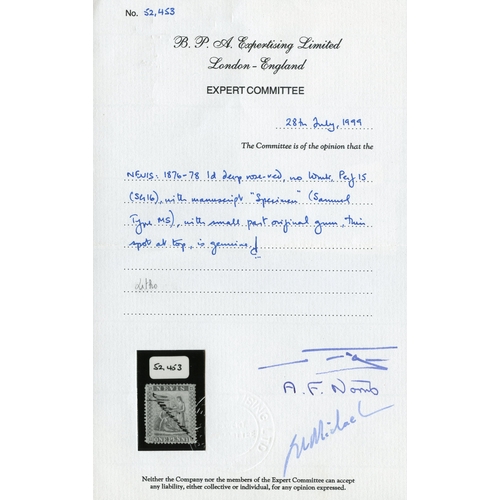 No. 52,453
B. P. A. Expertising Limited
London - England
EXPERT COMMITTEE
28th July, 1999
The Committee is of the opinion that the
NEVIS: 1876-78 1d deep rose-red, no Wmk, Perf 15
(SG16), with manuscript "Specimen" (Samuel
Type MS), with small part original gum, thin
spot at top, is genuine.
Litho
52,453
NEVIS
ONE PENNY
Neither the Company nor the members of the Expert Committee can accept
any liability, either collective or individual, for any opinion expressed.